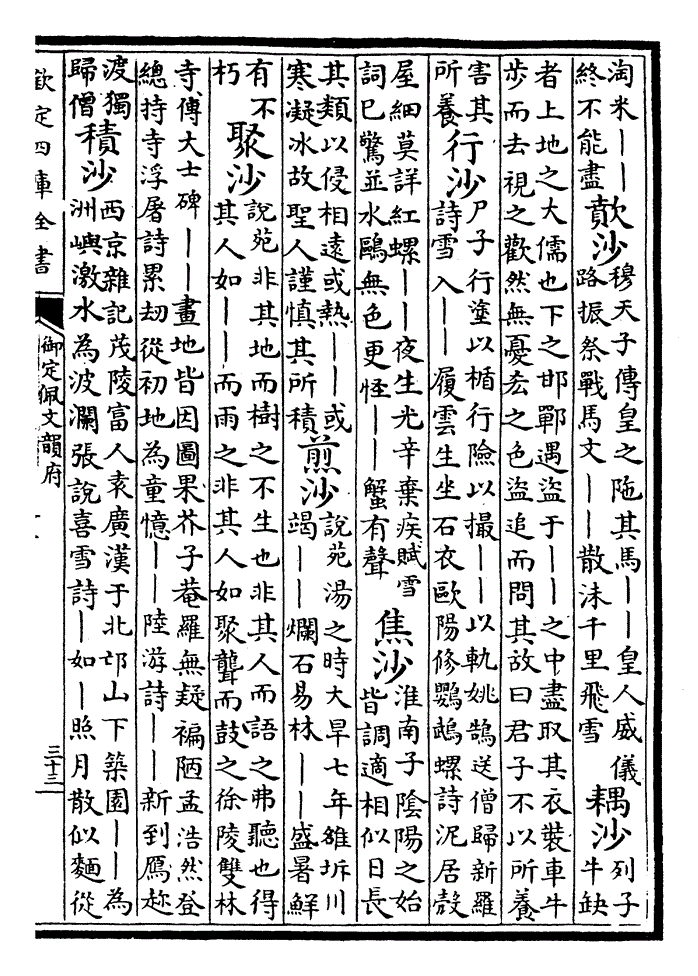 淘米——
終不能盡
歕沙
穆天子傳皇之陁其馬——皇人威儀
路振祭戰馬文——散沫千里飛雪
耦沙
列子
牛缺
者上地之大儒也下之邯鄲遇盜于——之中盡取其衣裝車牛
步而去視之歡然無憂㤅之色盜追而問其故曰君子不以所養
害其
所養
行沙
尸子行塗以楯行險以撮——以軌姚鵠送僧歸新羅
詩雪入——履雲生坐石衣歐陽修鸚鵡螺詩泥居殼
屋細莫詳紅螺——夜生光辛棄疾賦雪
詞已驚並水鷗無色更怪——蟹有聲
焦沙
淮南子陰陽之始
皆調適相似日長
其類以侵相遠或熱——或
寒凝冰故聖人謹慎其所積
煎沙
說苑湯之時大旱七年雒坼川
竭——爛石易林——盛暑鮮
有不
朽
聚沙
說苑非其地而樹之不生也非其人而語之弗聽也得
其人如——而雨之非其人如聚聾而鼓之徐陵雙林
寺傳大士碑——畫地皆因圖果芥子菴羅無疑褊陋孟浩然登
總持寺浮屠詩累刧從初地為童憶——陸游詩——新到鴈趂
渡獨
歸僧
積沙
西京雜記茂陵富人袁廣漢于北邙山下築園——為
洲嶼激水為波瀾張說喜雪詩—如—照月散似麵從
欽定四庫全書
御定佩文韻府
三十三